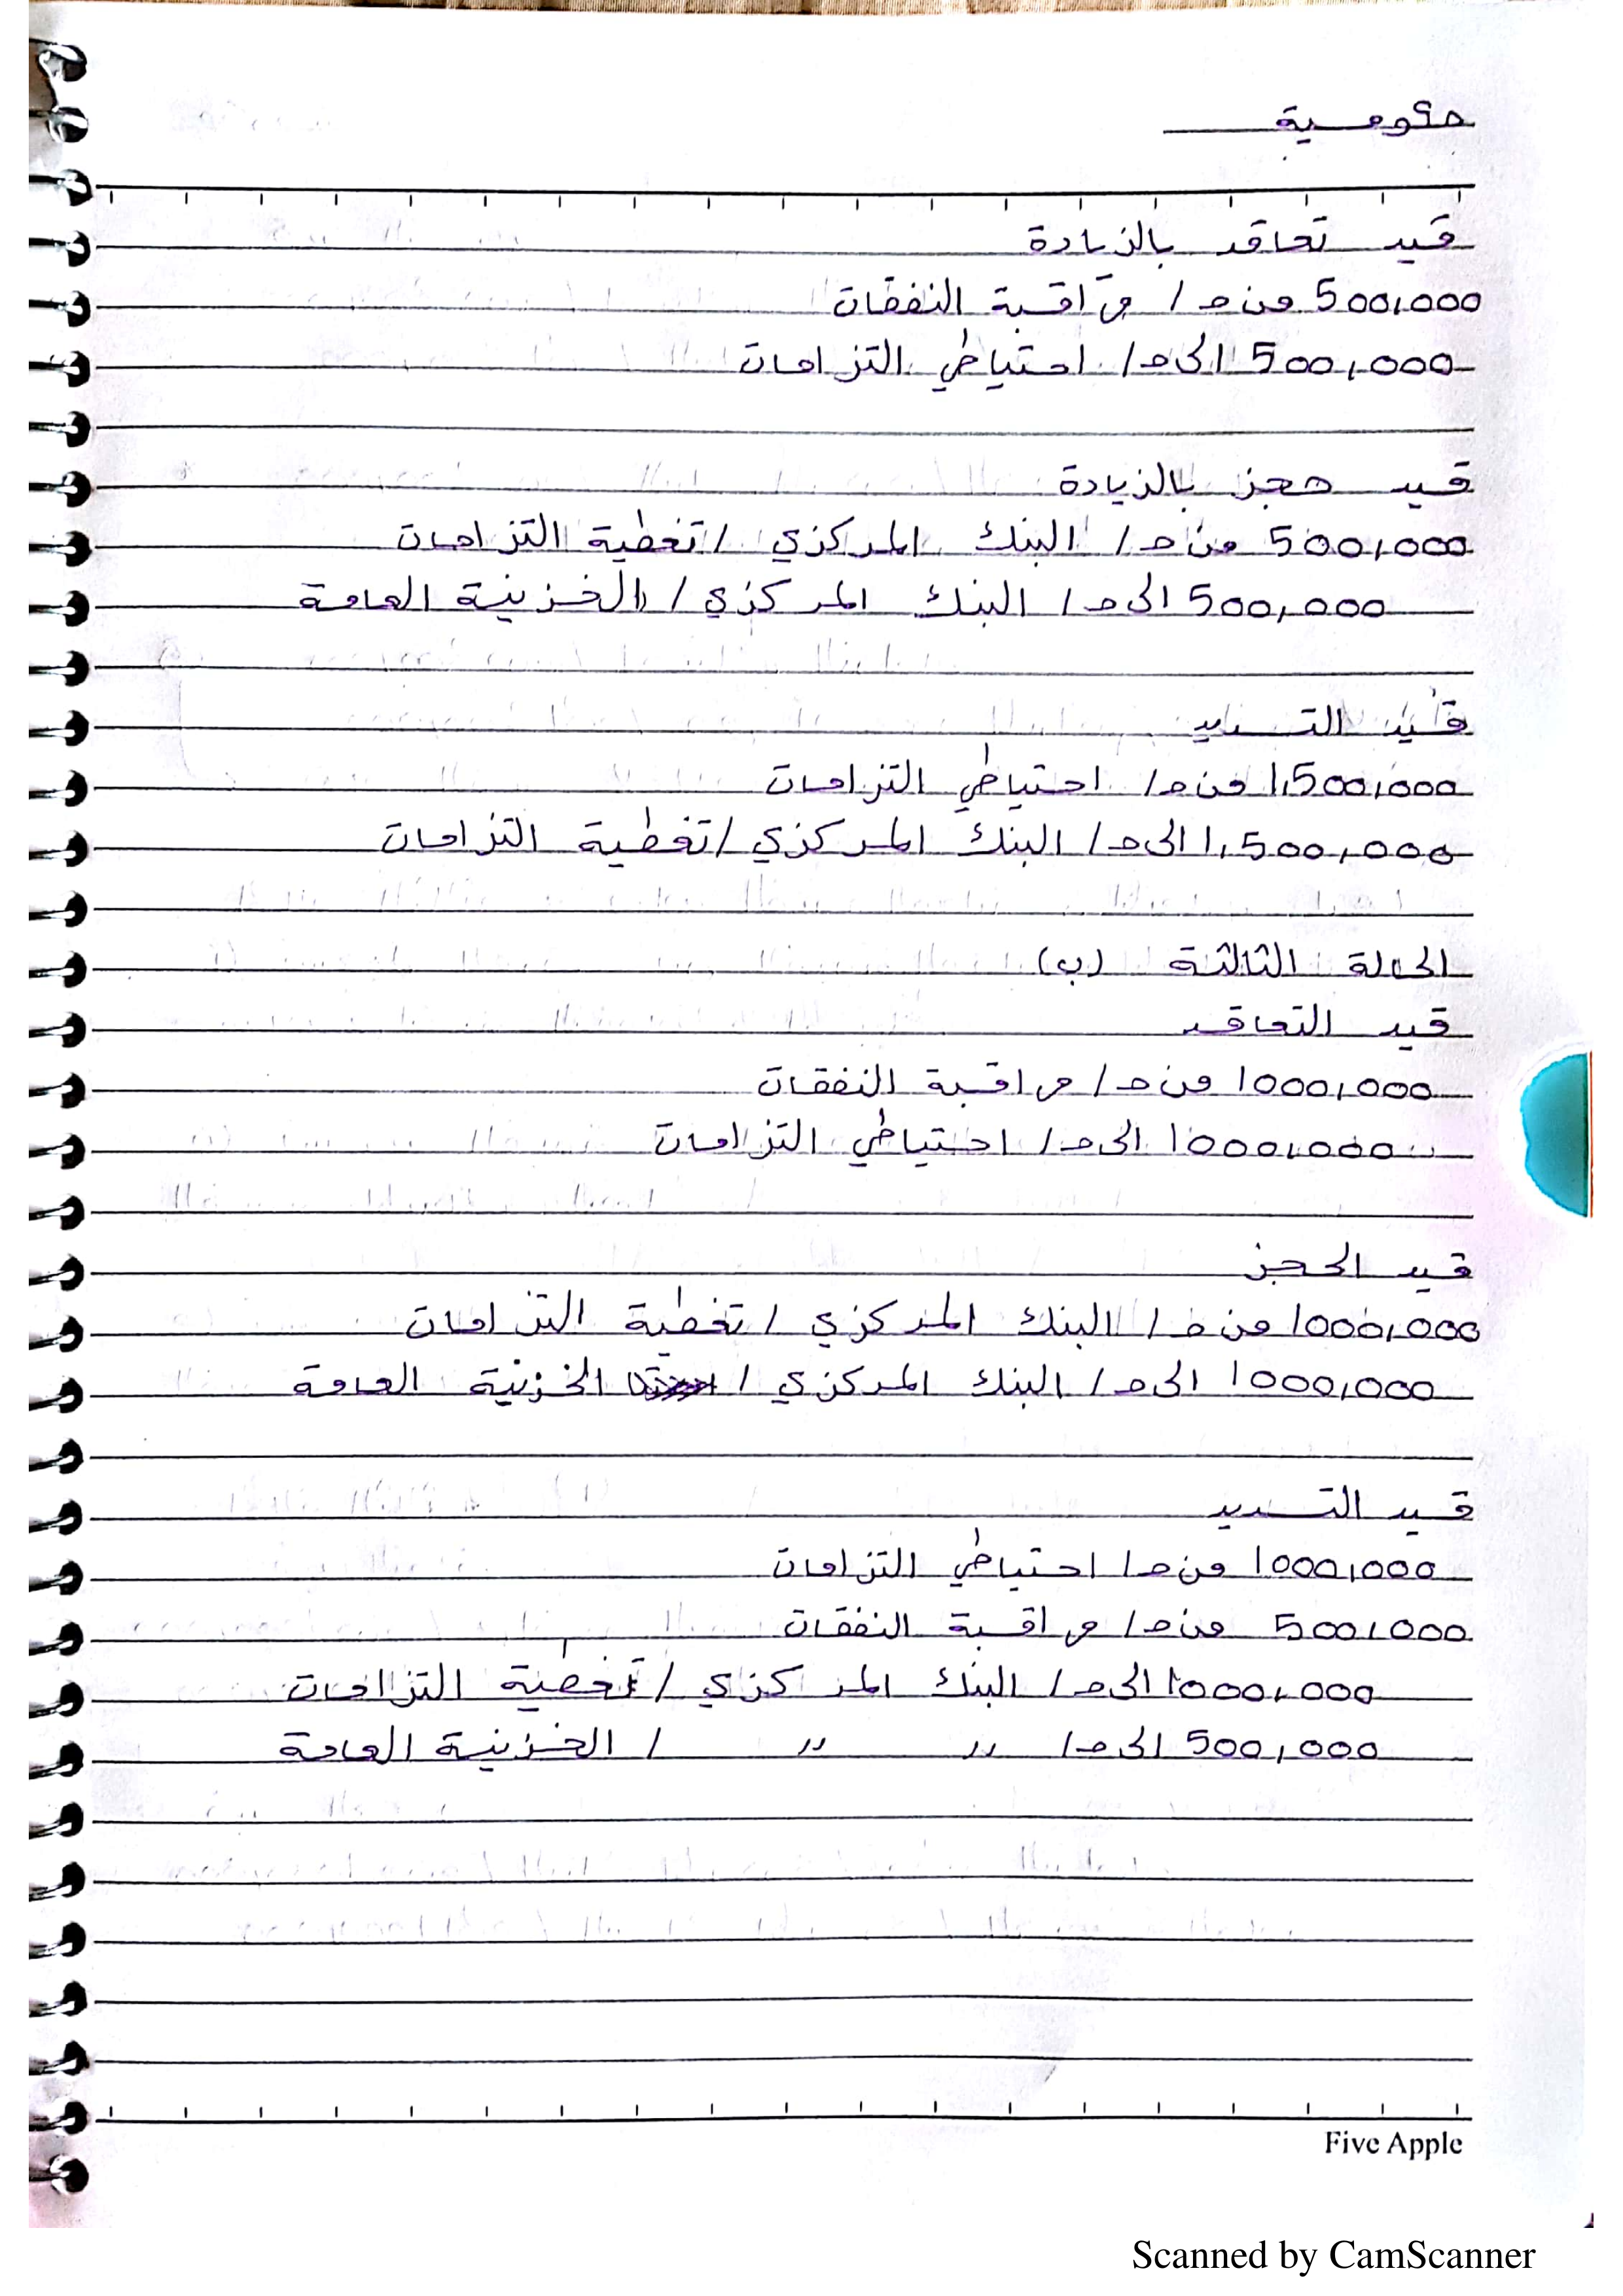 حكومية
قيد تعاقد بالزيادة
500,000 من حـ/ مراقبة النفقات
500,000 الى حـ/ احتياطي التزامات
قيد حجز بالزيادة
500,000 من حـ/ البنك المركزي / تغطية التزامات
500,000 الى حـ/ البنك المركزي / الخزينة العامة
قيد التسديد
1,500,000 من حـ/ احتياطي التزامات
1,500,000 الى حـ/ البنك المركزي / تغطية التزامات
الحالة الثالثة (ب)
قيد التعاقد
1000,000 من حـ/ مراقبة النفقات
1000,000 الى حـ/ احتياطي التزامات
قيد الحجز
1000,000 من حـ/ البنك المركزي / تغطية التزامات
1000,000 الى حـ/ البنك المركزي / الخزينة العامة
قيد التسديد
1000,000 من حـ/ احتياطي التزامات
500,000 من حـ/ مراقبة النفقات
1000,000 الى حـ/ البنك المركزي / تغطية التزامات
500,000 الى حـ/ " " / الخزينة العامة
Five Apple
Scanned by CamScanner